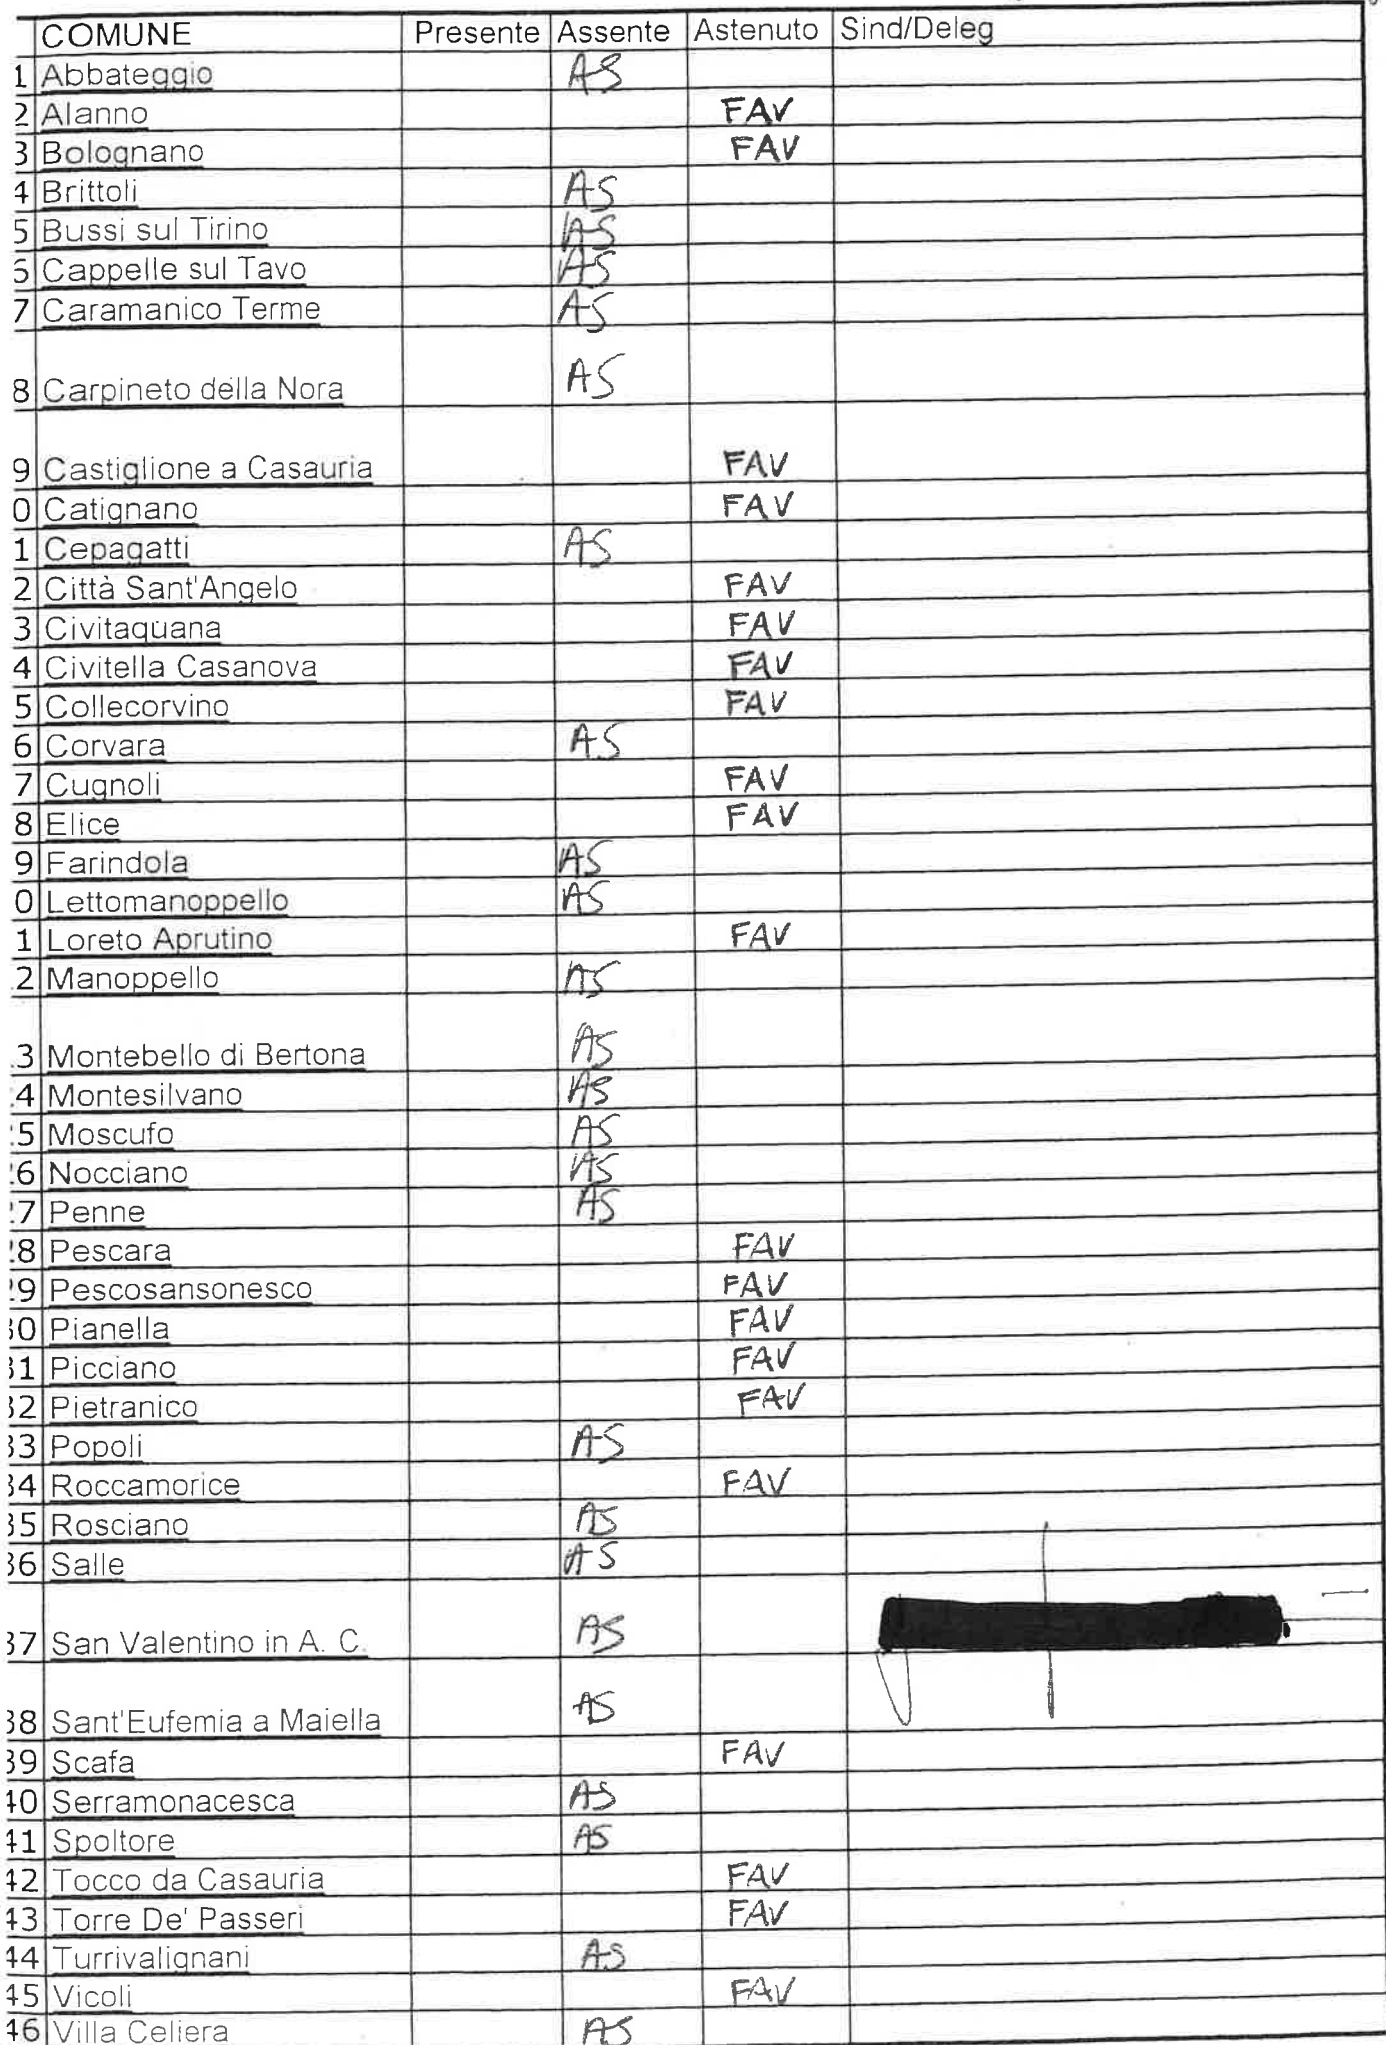 COMUNE Presente Assente Astenuto Sind/Deleg
1 Abbateggio AS
2 Alanno FAV
3 Bolognano FAV
4 Brittoli AS
5 Bussi sul Tirino AS
6 Cappelle sul Tavo AS
7 Caramanico Terme AS
8 Carpineto della Nora AS
9 Castiglione a Casauria FAV
0 Catignano FAV
1 Cepagatti AS
2 Città Sant'Angelo FAV
3 Civitaquana FAV
4 Civitella Casanova FAV
5 Collecorvino FAV
6 Corvara AS
7 Cugnoli FAV
8 Elice FAV
9 Farindola AS
0 Lettomanoppello AS
1 Loreto Aprutino FAV
2 Manoppello AS
3 Montebello di Bertona AS
4 Montesilvano AS
5 Moscufo AS
6 Nocciano AS
27 Penne AS
28 Pescara FAV
29 Pescosansonesco FAV
30 Pianella FAV
31 Picciano FAV
32 Pietranico FAV
33 Popoli AS
34 Roccamorice FAV
35 Rosciano AS
36 Salle AS
37 San Valentino in A. C. AS
38 Sant'Eufemia a Maiella AS
39 Scafa FAV
40 Serramonacesca AS
41 Spoltore AS
42 Tocco da Casauria FAV
43 Torre De' Passeri FAV
44 Turrivalignani AS
45 Vicoli FAV
46 Villa Celiera AS